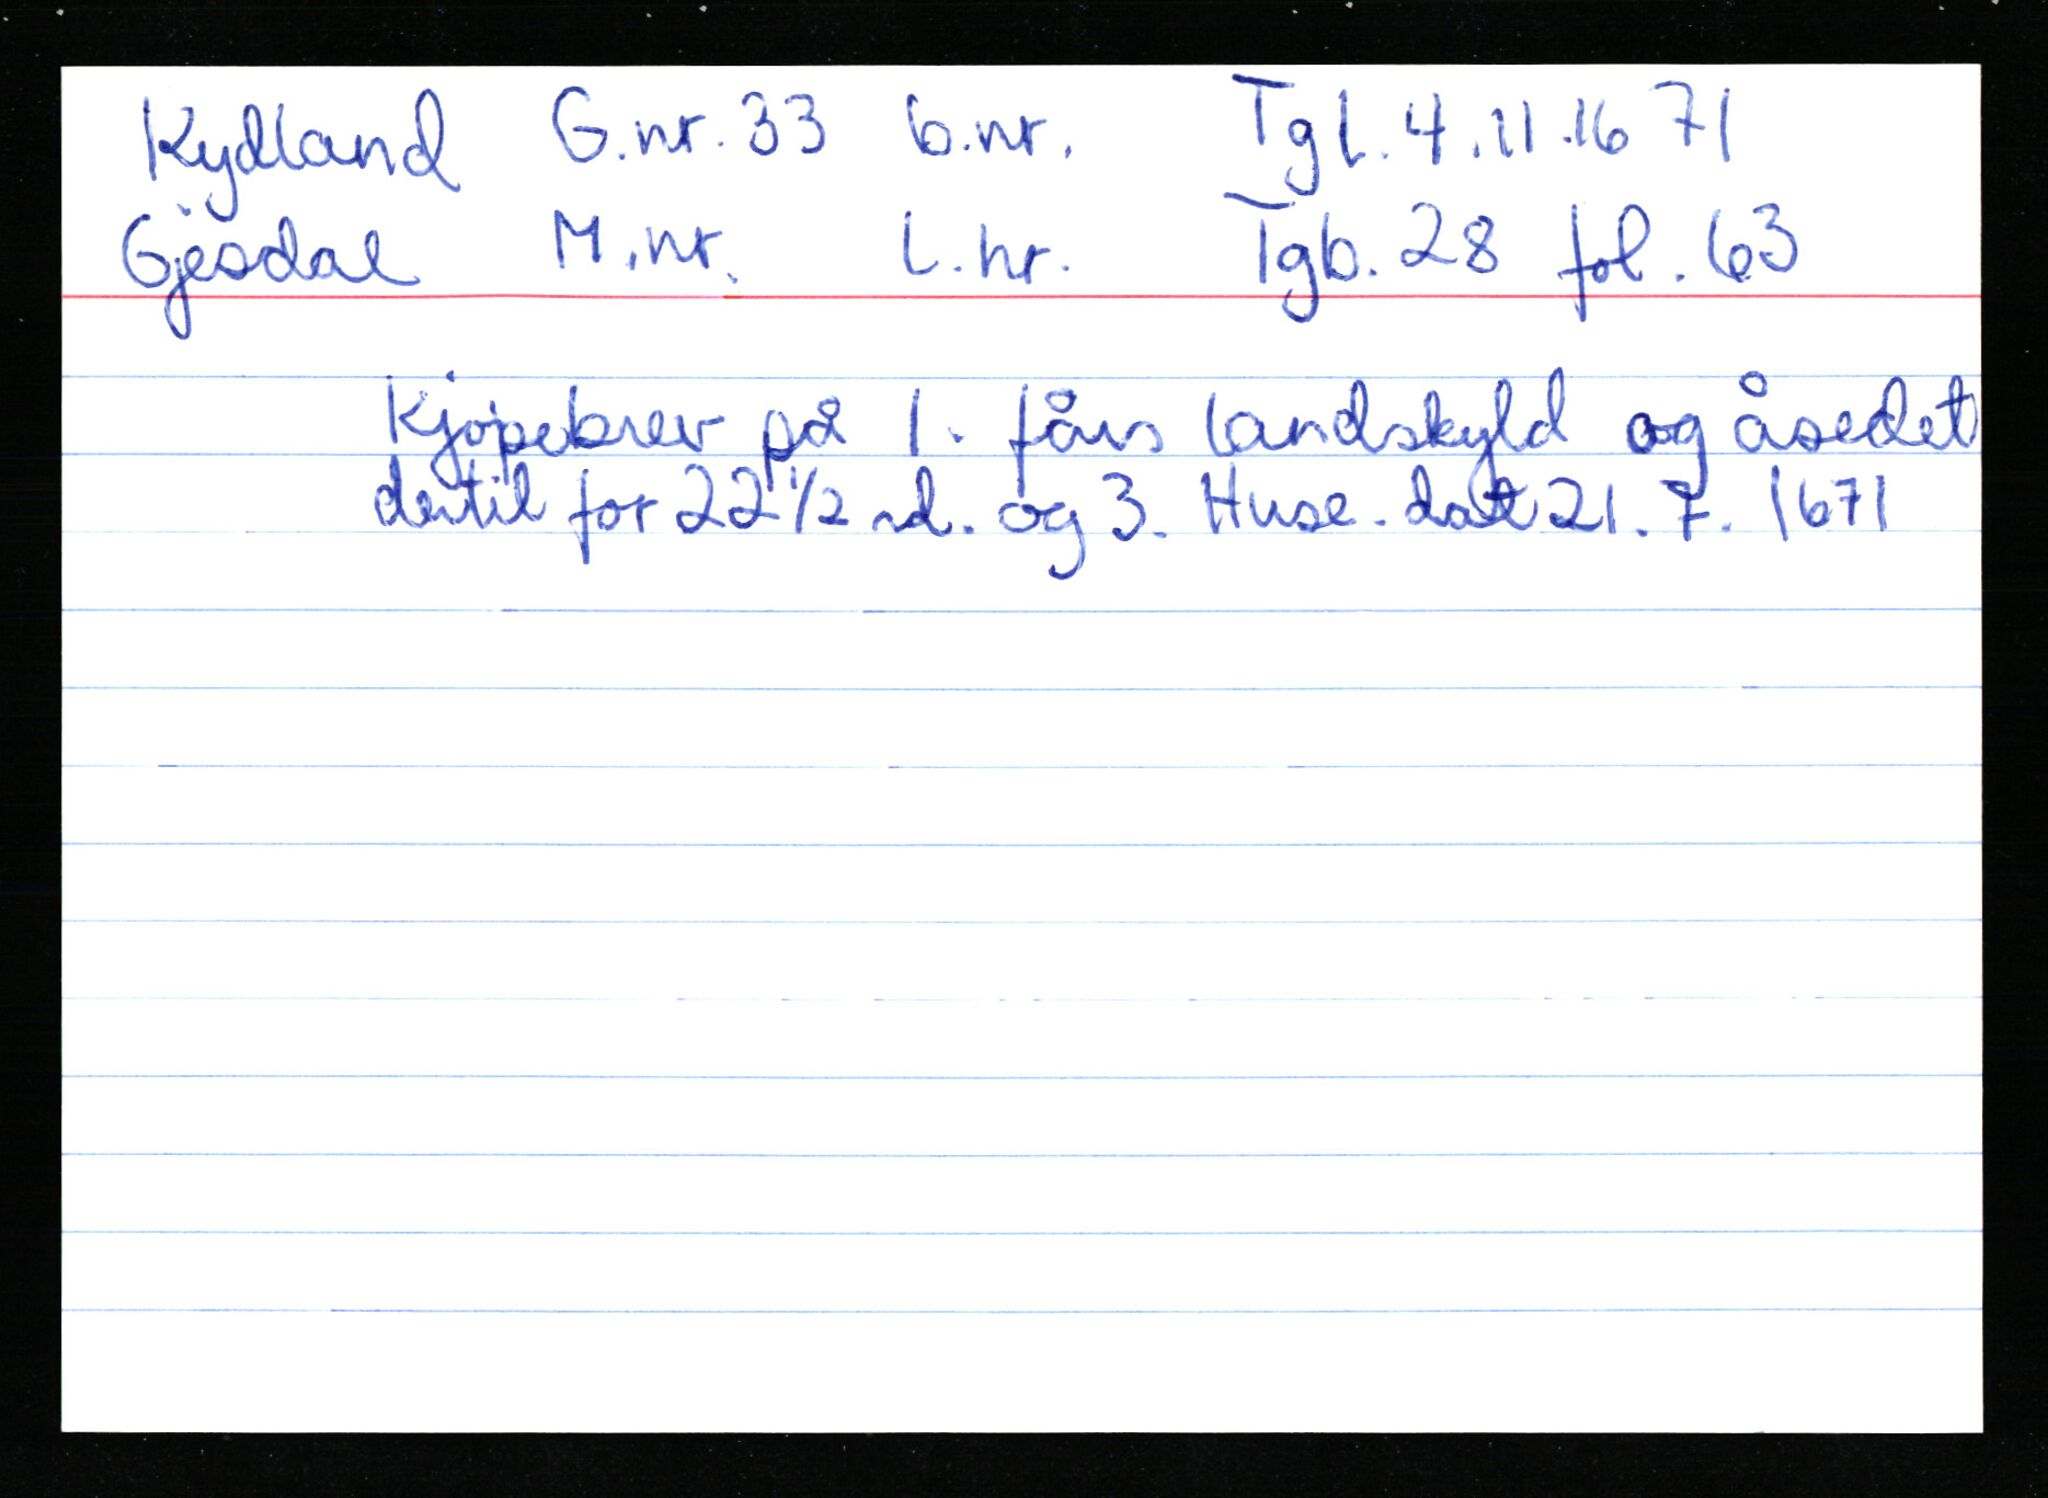 Kydland G.nr. 33 b.nr. Tgl. 4.11.1671
Gjesdal M.nr. L.nr. Tgb. 28 fol. 63
Kjøpebrev på 1. fårs landskyld og åsedet
dertil for 22 1/2 rd. og 3. Huse. dat 21.7.1671